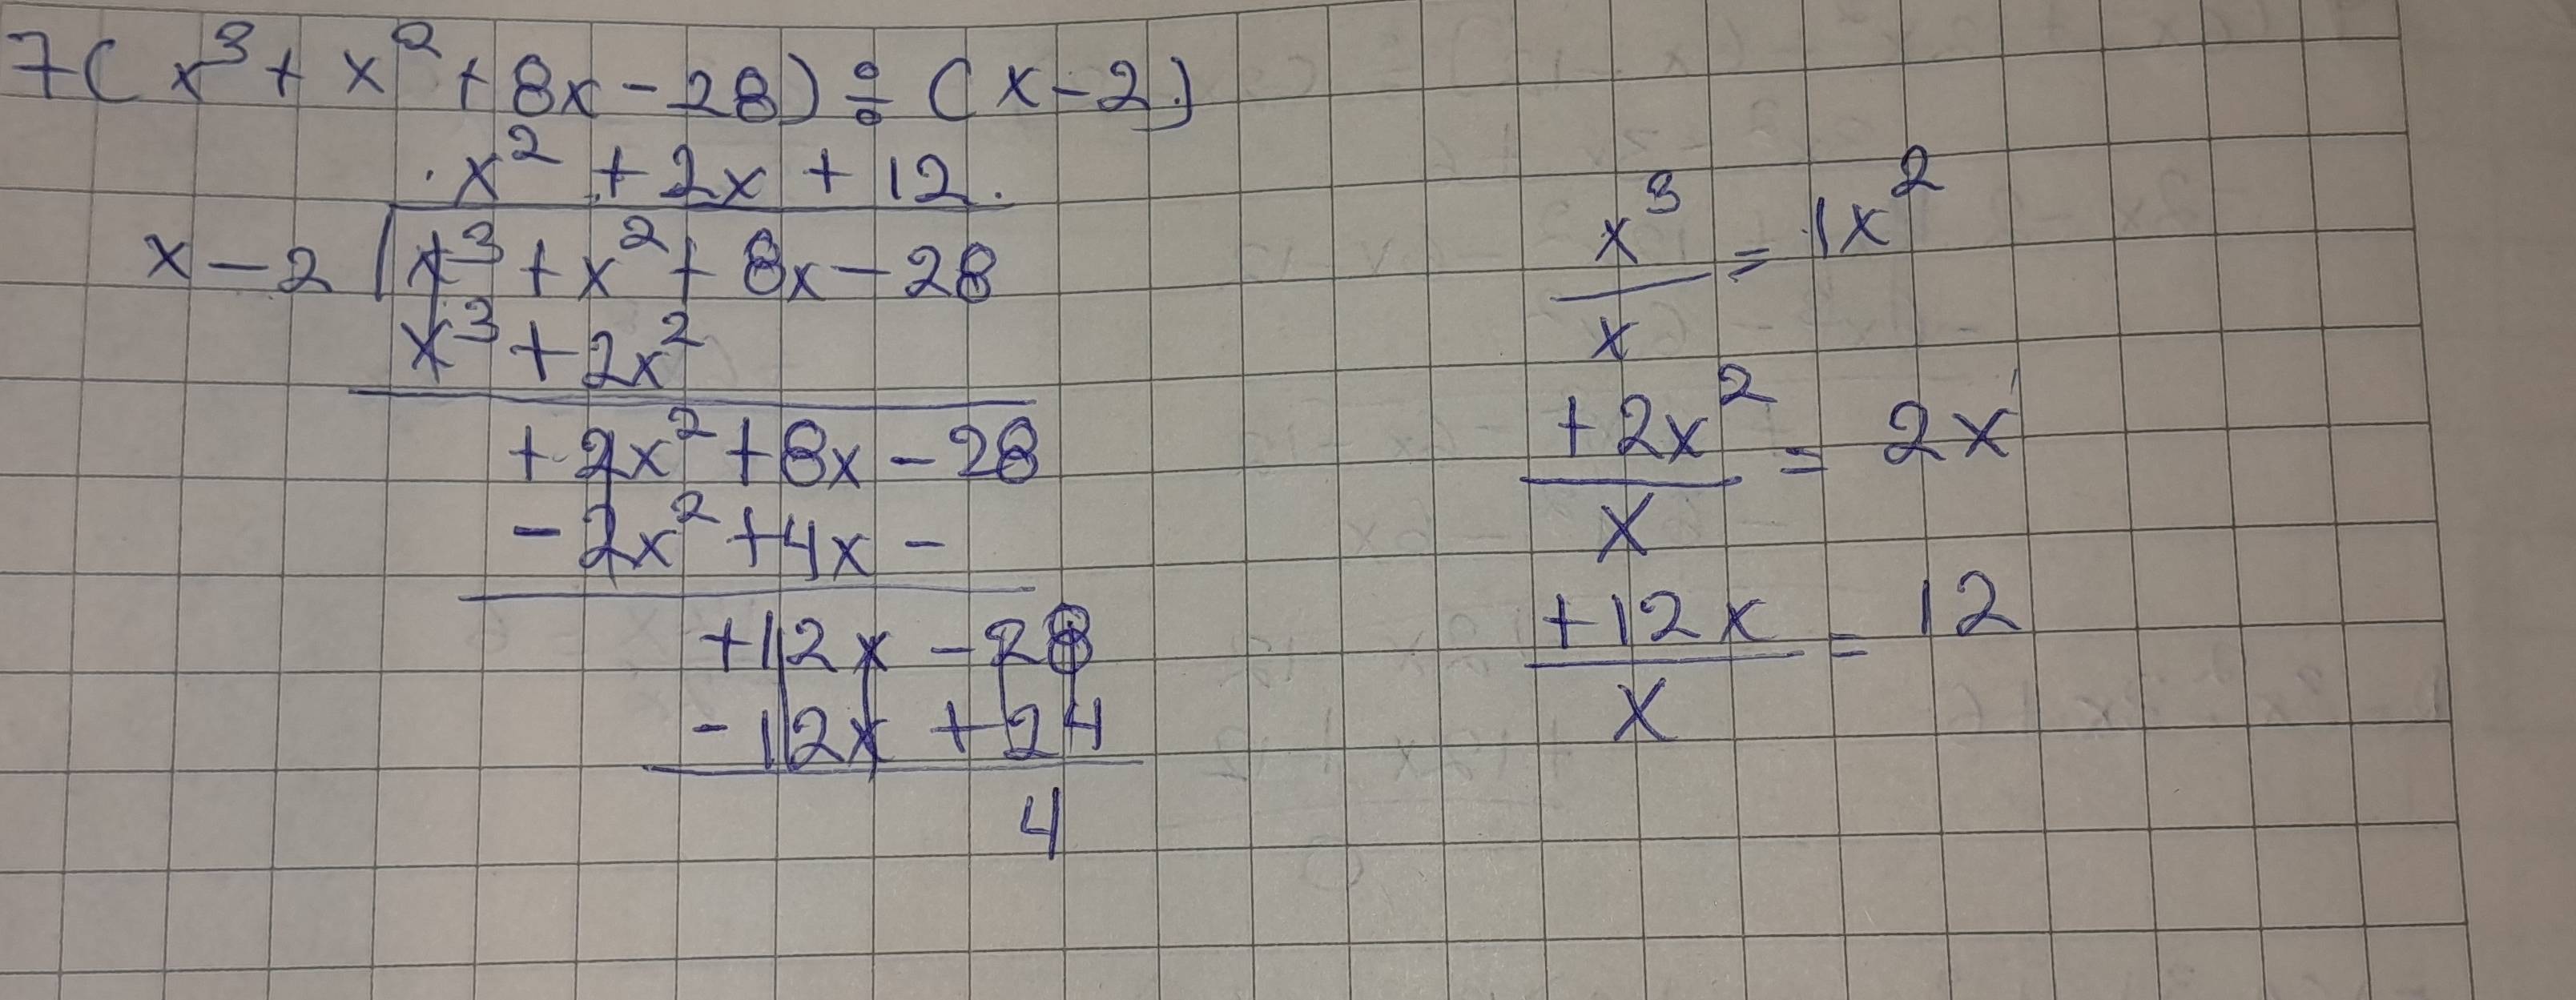 7( x³ + x² + 8x - 28) ÷ (x - 2)
x² + 2x + 12
x - 2 | x³ + x² + 8x - 28
x³ + 2x²
+ 2x² + 8x - 28
- 2x² + 4x -
+12x - 28
- 12x + 24
4
x³/x = 1x²
+2x²/x = 2x
+12x/x = 12